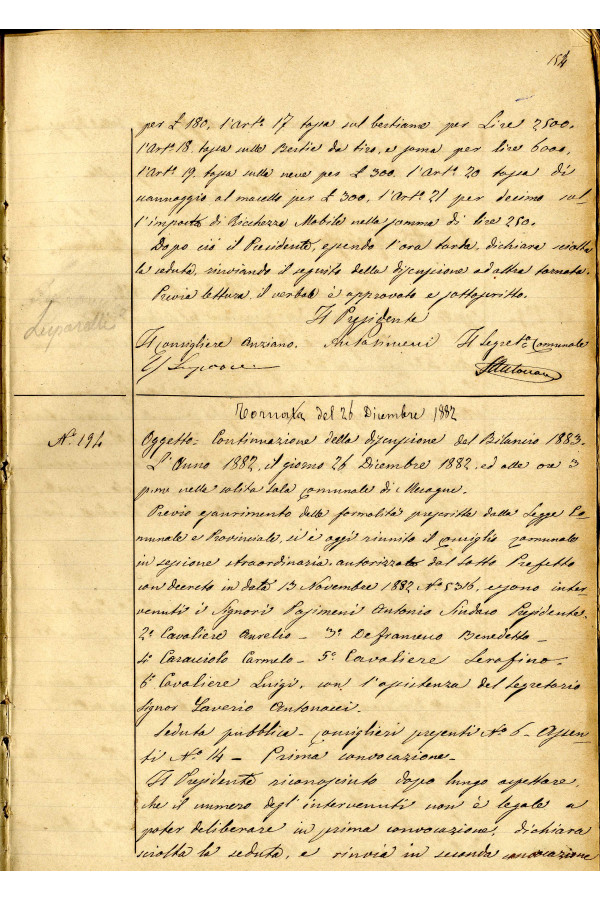 154
per £ 180, l'Arto 17 tassa sul bestiame per Lire 2500,
l'Arto 18. tassa sulle Bestie da tiro, e soma per lire 6000,
l'Arto 19. tassa sulla neve per £ 300. l'Arto 20 tassa di
scannaggio al macello per £ 300, l'Arto 21 per decimo sul-
l'imposta di Ricchezza Mobile nella somma di lire 250.
Dopo ciò il Presidente, essendo l'ora tarda, dichiara sciolta
la seduta, rinviando il seguito della discussione ad altra tornata.
Previa lettura, il verbale è approvato e sottoscritto.
Il Presidente
Il Consigliere Anziano. Il Segreto Comunale
Tornata del 26 Dicembre 1882
No 194
Oggetto= Continuazione della discussione del Bilancio 1883.
L'Anno 1882, il giorno 26 Dicembre 1882, ed alle ore 3
p.m. nella solita Sala Comunale di Mesagne.
Previo esaurimento delle formalità prescritte dalla Legge Co-
munale e Provinciale, si è oggi riunito il Consiglio Comunale
in sessione straordinaria, autorizzata dal Sotto Prefetto
con decreto in data 13 Novembre 1882 No 5316, e sono inter-
venuti i Signori Pasimeni Antonio Sindaco Presidente.
2o Cavaliere Aurelio - 3o Defrancesco Benedetto -
4o Caracciolo Carmelo - 5o Cavaliere Serafino -
6o Cavaliere Luigi, con l'assistenza del Segretario
Signor Saverio Antonucci.
Seduta pubblica - Consiglieri presenti No 6 - Assen-
ti No 14 - Prima convocazione -
Il Presidente riconosciuto dopo lungo aspettare,
che il numero degl'intervenuti non è legale a
poter deliberare in prima convocazione, dichiara
sciolta la seduta, e rinvia in seconda convocazione